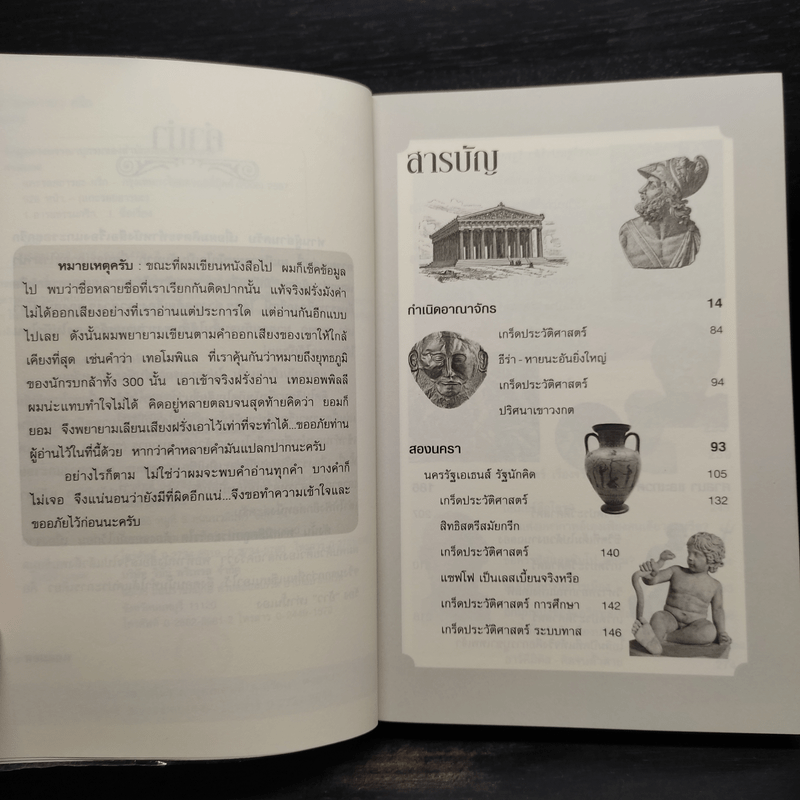 หมายเหตุครับ : ขณะที่ผมเขียนหนังสือไป ผมก็เช็คข้อมูล
ไป พบว่าชื่อหลายชื่อที่เราเรียกกันติดปากนั้น แท้จริงฝรั่งมังค่า
ไม่ได้ออกเสียงอย่างที่เราอ่านแต่ประการใด แต่อ่านกันอีกแบบ
ไปเลย ดังนั้นผมพยายามเขียนตามคำออกเสียงของเขาให้ใกล้
เคียงที่สุด เช่นคำว่า เทอโมพิแล ที่เราคุ้นกันว่าหมายถึงยุทธภูมิ
ของนักรบกล้าทั้ง 300 นั้น เอาเข้าจริงฝรั่งอ่าน เทอมอพพิลลี
ผมน่ะแทบทำใจไม่ได้ คิดอยู่หลายตลบจนสุดท้ายคิดว่า ยอมก็
ยอม จึงพยายามเลียนเสียงฝรั่งเอาไว้เท่าที่จะทำได้...ขออภัยท่าน
ผู้อ่านไว้ในที่นี้ด้วย หากว่าคำหลายคำมันแปลกปากนะครับ
อย่างไรก็ตาม ไม่ใช่ว่าผมจะพบคำอ่านทุกคำ บางคำก็
ไม่เจอ จึงแน่นอนว่ายังมีที่ผิดอีกแน่...จึงขอทำความเข้าใจและ
ขออภัยไว้ก่อนนะครับ
สารบัญ
กำเนิดอาณาจักร 14
เกร็ดประวัติศาสตร์ 84
ธีร่า - หายนะอันยิ่งใหญ่
เกร็ดประวัติศาสตร์ 94
ปริศนาเขาวงกต
สองนครา 93
นครรัฐเอเธนส์ รัฐนักคิด 105
เกร็ดประวัติศาสตร์ 132
สิทธิสตรีสมัยกรีก
เกร็ดประวัติศาสตร์ 140
แซฟโฟ เป็นเลสเบี้ยนจริงหรือ
เกร็ดประวัติศาสตร์ การศึกษา 142
เกร็ดประวัติศาสตร์ ระบบทาส 146